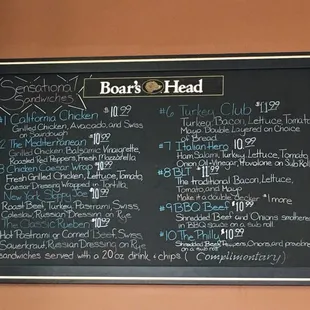 Sensational
Sandwiches
Boar's Head
#1 California Chicken $10.99
Grilled Chicken, Avocado, and Swiss
on Sourdough
2 The Mediterranean $10.99
Grilled Chicken, Balsamic Vinaigrette,
Roasted Red Peppers, Fresh Mozzarella
Chicken Caesar Wrap $10.99
Fresh Grilled Chicken, Lettuce, Tomato,
Caesar Dressing Wrapped in Tortilla
New York Sloppy Joe $10.99
Roast Beef, Turkey, Pastrami, Swiss,
Coleslaw, Russian Dressing on Rye
The Classic Rueben $10.99
Hot Pastrami or Corned Beef, Swiss,
Sauerkraut, Russian Dressing on Rye
#6 Turkey Club $11.99
Turkey, Bacon, Lettuce, Tomato
Mayo Double Layered on Choice
of Bread
#7 Italian Hero $10.99
Ham, Salami, Turkey, Lettuce, Tomato,
Onion, Oil-Vinegar, Provolone on Sub Roll
#8 BLT $11.99
The traditional Bacon, Lettuce,
Tomato, and Mayo
Make it a double decker $1 more
#9 BBQ Beef $10.99
Shredded Beef and Onions smothered
in BBQ sauce on a sub roll
#10 The Philly $10.99
Shredded Beef, Peppers, Onions, and
on a sub roll
sandwiches served with a 20oz drink + chips (Complimentary)